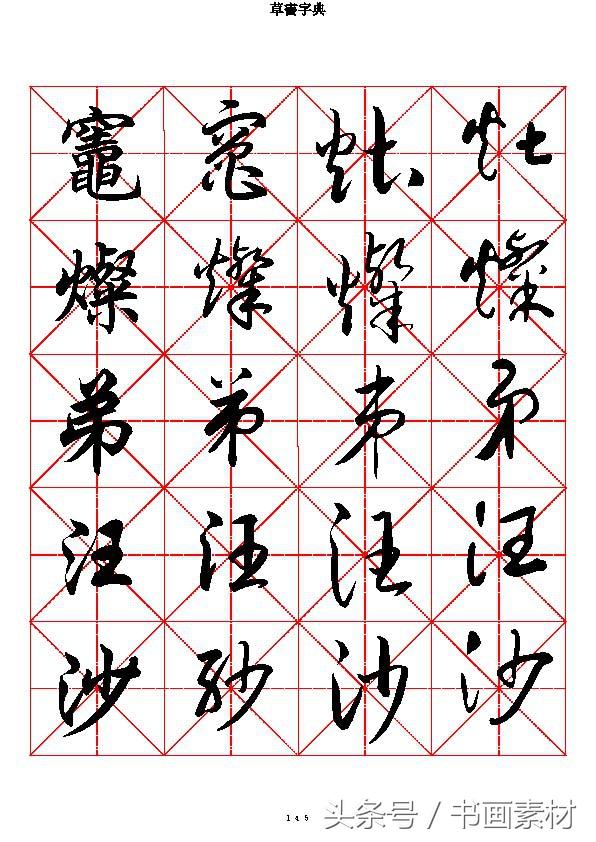 草書字典
竈 竈 灶 灶
燦 燦 燦 燦
弟 弟 弟 弟
汪 汪 汪 汪
沙 紗 沙 沙
145
头条号 / 书画素材